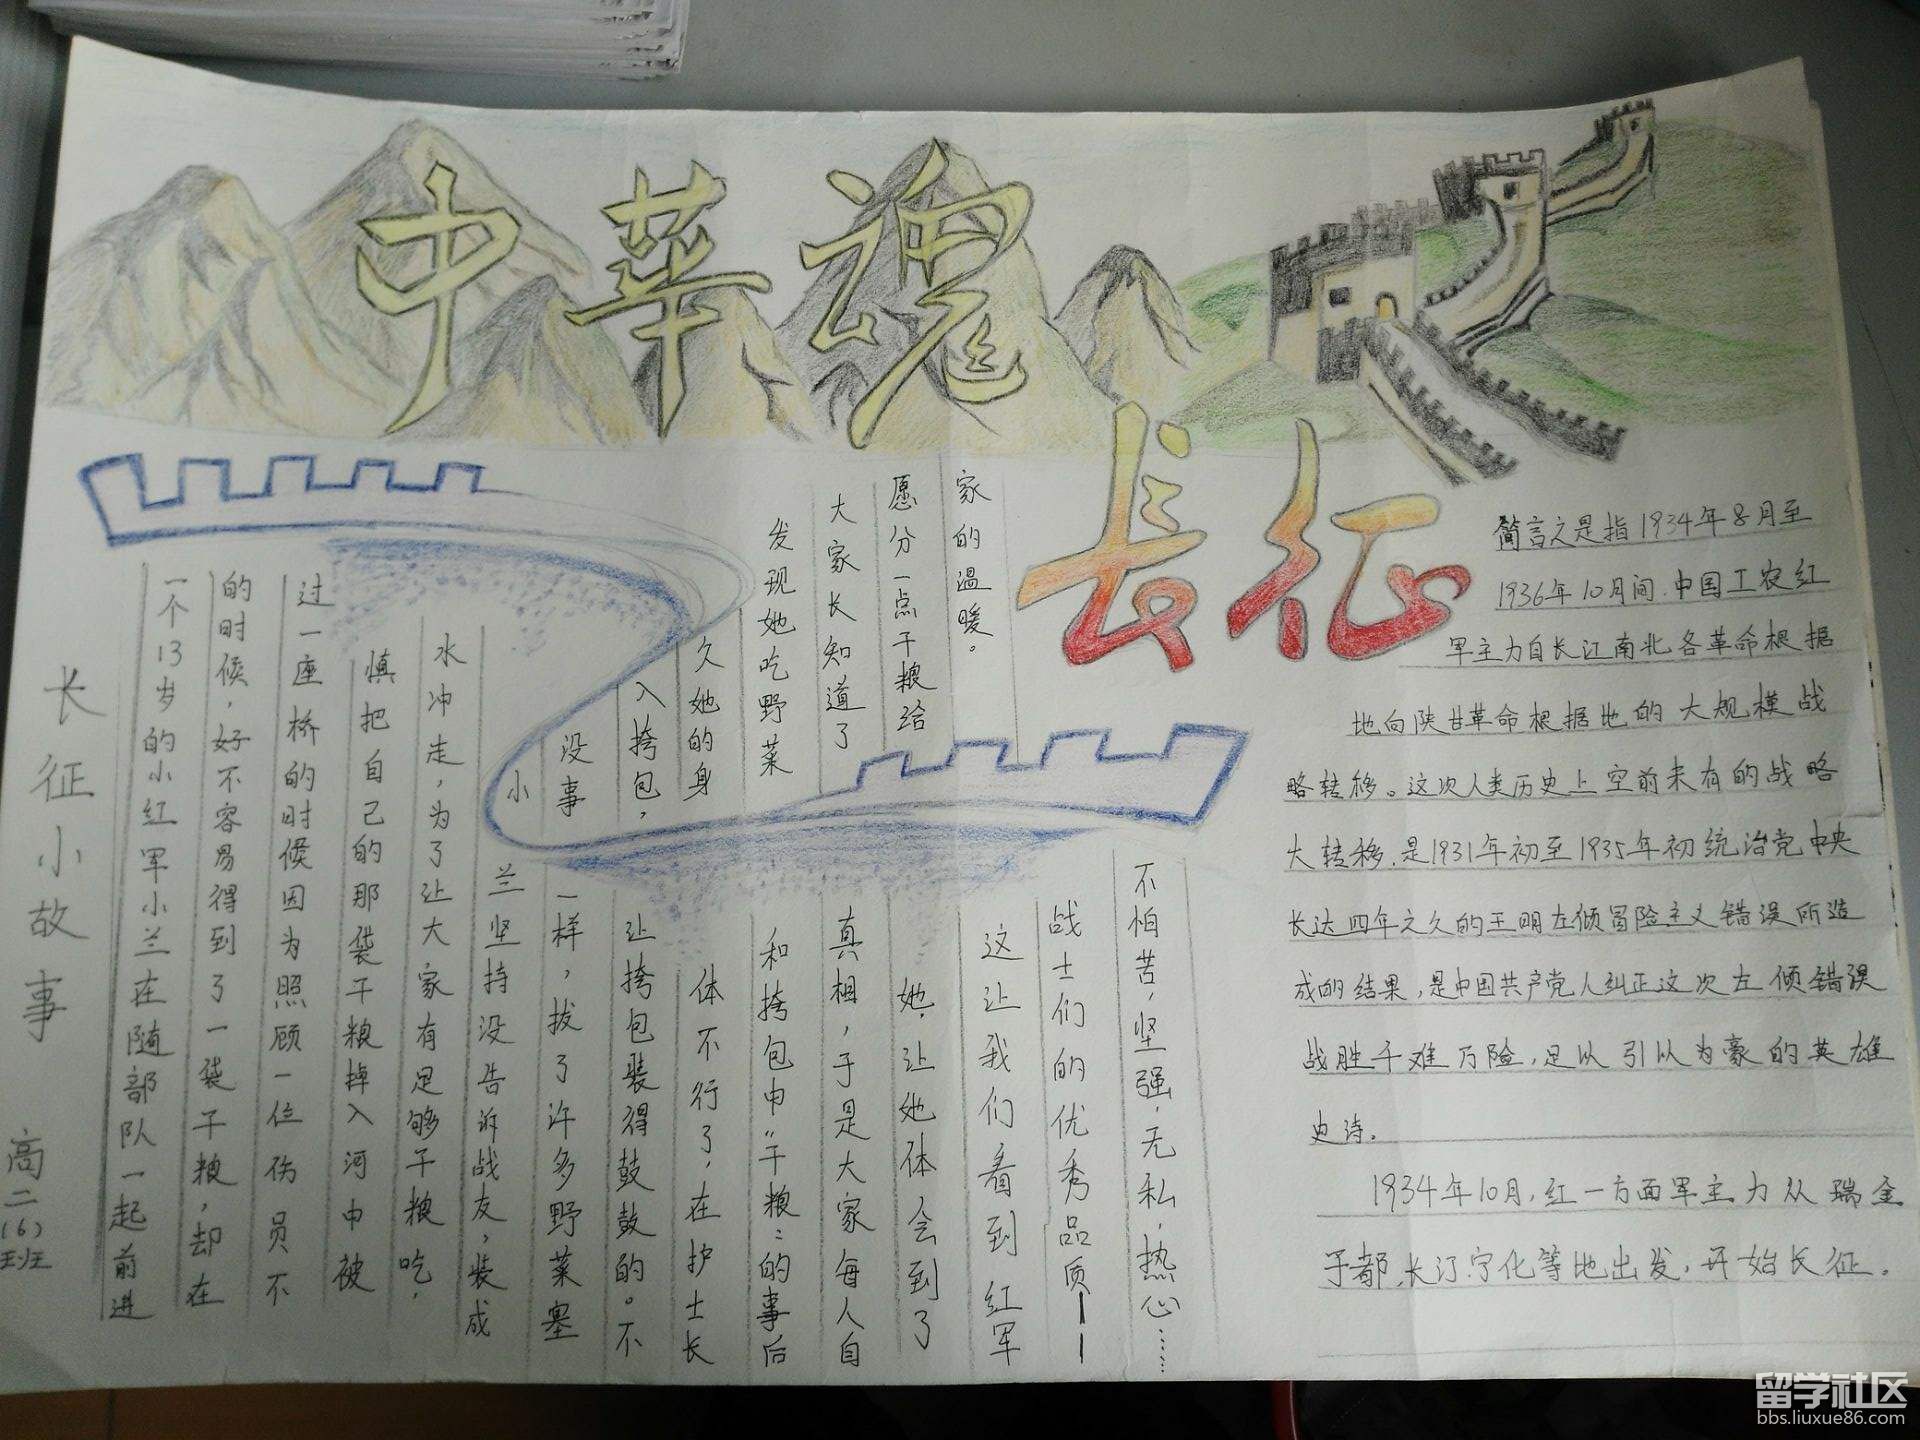 中华魂
长征
长征小故事
高二(6)班
一个13岁的小红军小兰在随部队一起前进
的时候,好不容易得到了一袋干粮,却在
过一座桥的时候因为照顾一位伤员不
慎把自己的那袋干粮掉入河中被
水冲走,为了让大家有足够干粮吃,
小兰坚持没告诉战友,装成
没事一样,拔了许多野菜塞
入挎包,让挎包装得鼓鼓的。不
久她的身体不行了,在护士长
发现她吃野菜和挎包中"干粮"的事后
大家长知道了真相,于是大家每人自
愿分一点干粮给她,让她体会到了
家的温暖。
这让我们看到红军
战士们的优秀品质——
不怕苦,坚强,无私,热心……
简言之是指1934年8月至
1936年10月间.中国工农红
军主力自长江南北各革命根据
地向陕甘革命根据地的大规模战
略转移。这次人类历史上空前未有的战略
大转移,是1931年初至1935年初统治党中央
长达四年之久的王明左倾冒险主义错误所造
成的结果,是中国共产党人纠正这次左倾错误
战胜千难万险,足以引以为豪的英雄
史诗。
1934年10月,红一方面军主力从瑞金
于都、长汀、宁化等地出发,开始长征。
留学社区
bbs.liuxue86.com